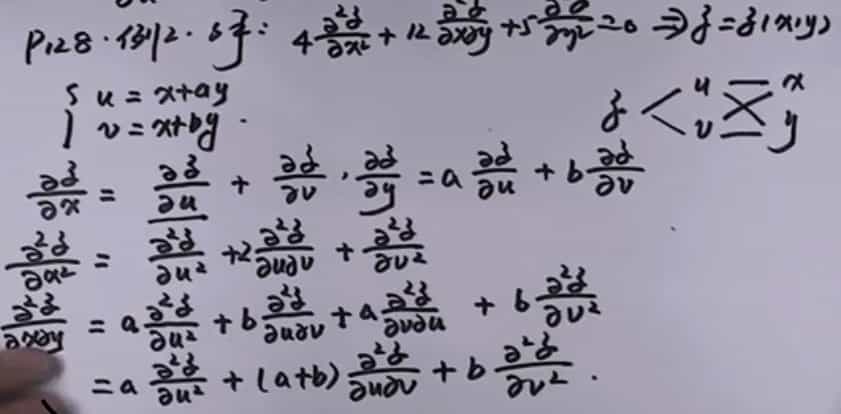 P128·例12·解: 4 ∂²z/∂x² + 12 ∂²z/∂x∂y + 5 ∂²z/∂y² = 0 ⇒ z = z(x,y)
{ u = x+ay
v = x+by.
z < u v x y
∂z/∂x = ∂z/∂u + ∂z/∂v · ∂z/∂y = a ∂z/∂u + b ∂z/∂v
∂²z/∂x² = ∂²z/∂u² + 2 ∂²z/∂u∂v + ∂²z/∂v²
∂²z/∂x∂y = a ∂²z/∂u² + b ∂²z/∂u∂v + a ∂²z/∂v∂u + b ∂²z/∂v²
= a ∂²z/∂u² + (a+b) ∂²z/∂u∂v + b ∂²z/∂v².